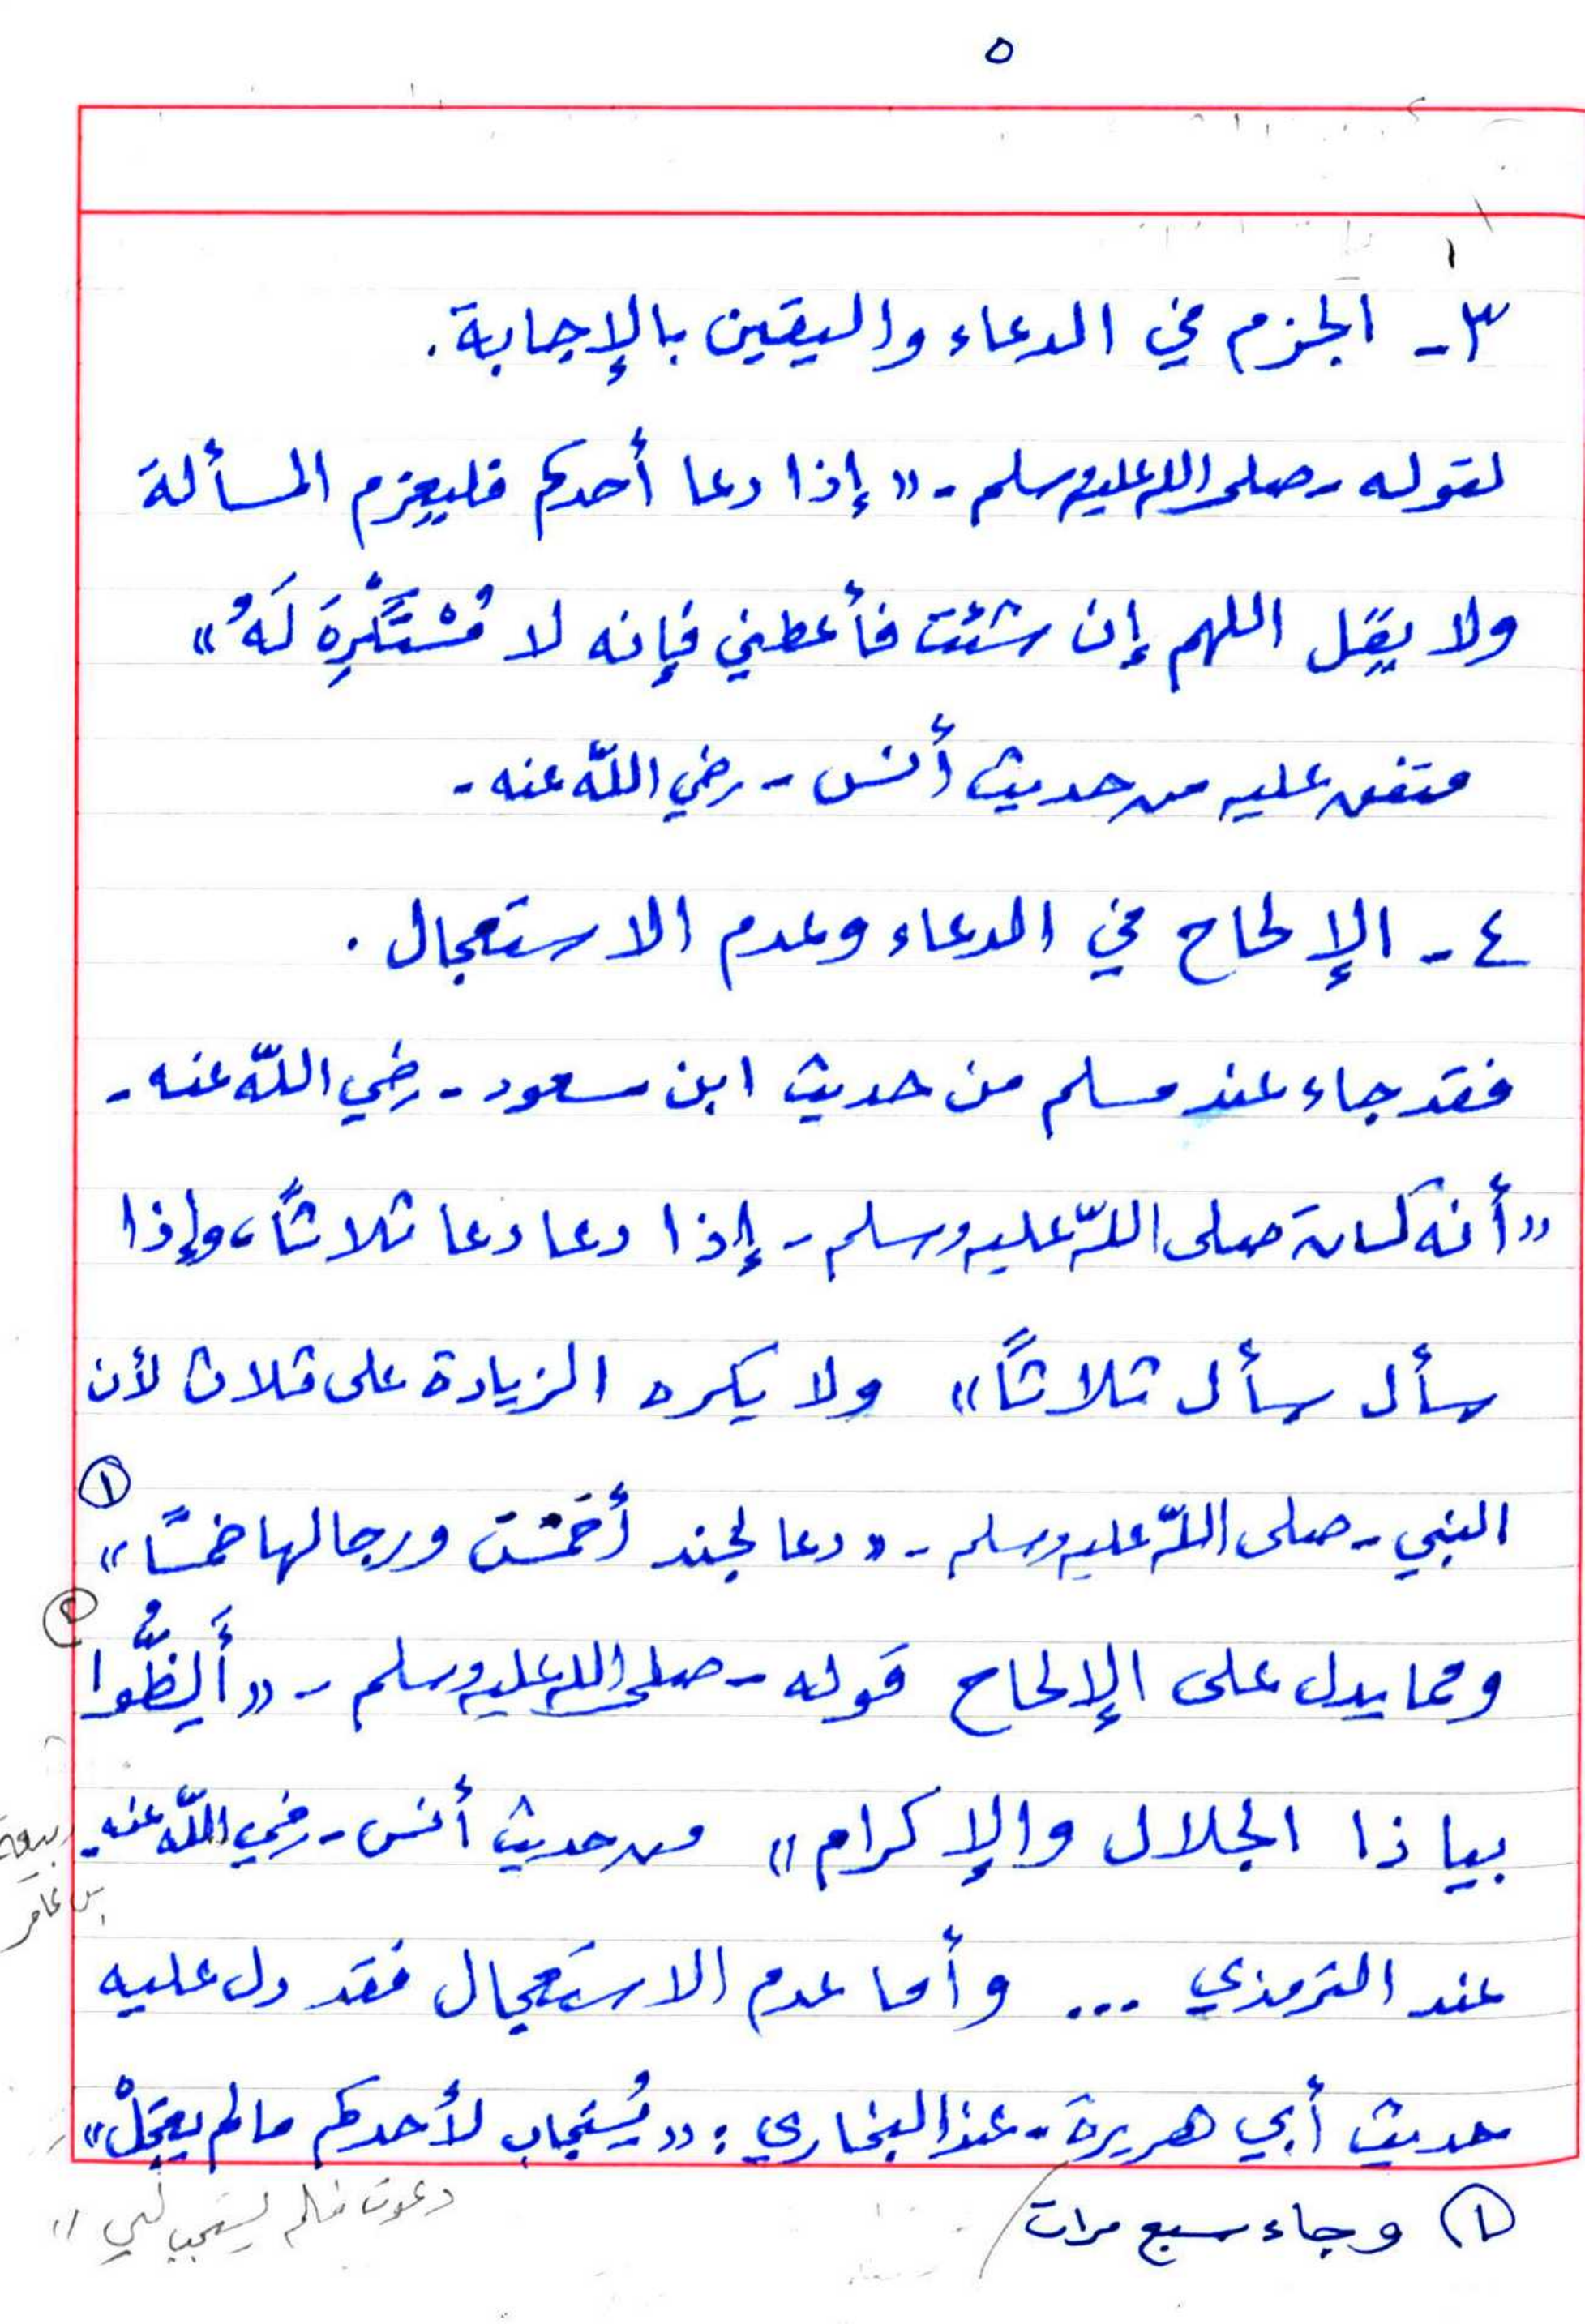 ٥
٣- الجزم في الدعاء واليقين بالإجابة.
لقوله - صلى الله عليه وسلم - « إذا دعا أحدكم فليعزم المسألة
ولا يقل اللهم إن شئت فأعطني فإنه لا مُسْتَكْرِهَ لَهُ »
متفق عليه من حديث أنس - رضي الله عنه -
٤- الإلحاح في الدعاء وعدم الاستعجال .
فقد جاء عند مسلم من حديث ابن مسعود - رضي الله عنه -
« أنه كان صلى الله عليه وسلم - إذا دعا دعا ثلاثاً، وإذا
سأل سأل ثلاثاً » ولا يكره الزيادة على ثلاث لأن
النبي - صلى الله عليه وسلم - « دعا لخند أحمست ورجالها خمسًا » ①
ومما يدل على الإلحاح قوله - صلى الله عليه وسلم - « أَلِظُّوا ②
بياذا الجلال والإكرام » من حديث أنس - رضي الله عنه - ربيعة
بن عامر
عند الترمذي ... وأما عدم الاستعجال فقد دل عليه
حديث أبي هريرة - عند البخاري : « يُستجاب لأحدكم ما لم يعجَلْ »
دعوت فلم يستجب لي »
① وجاء سبع مرات